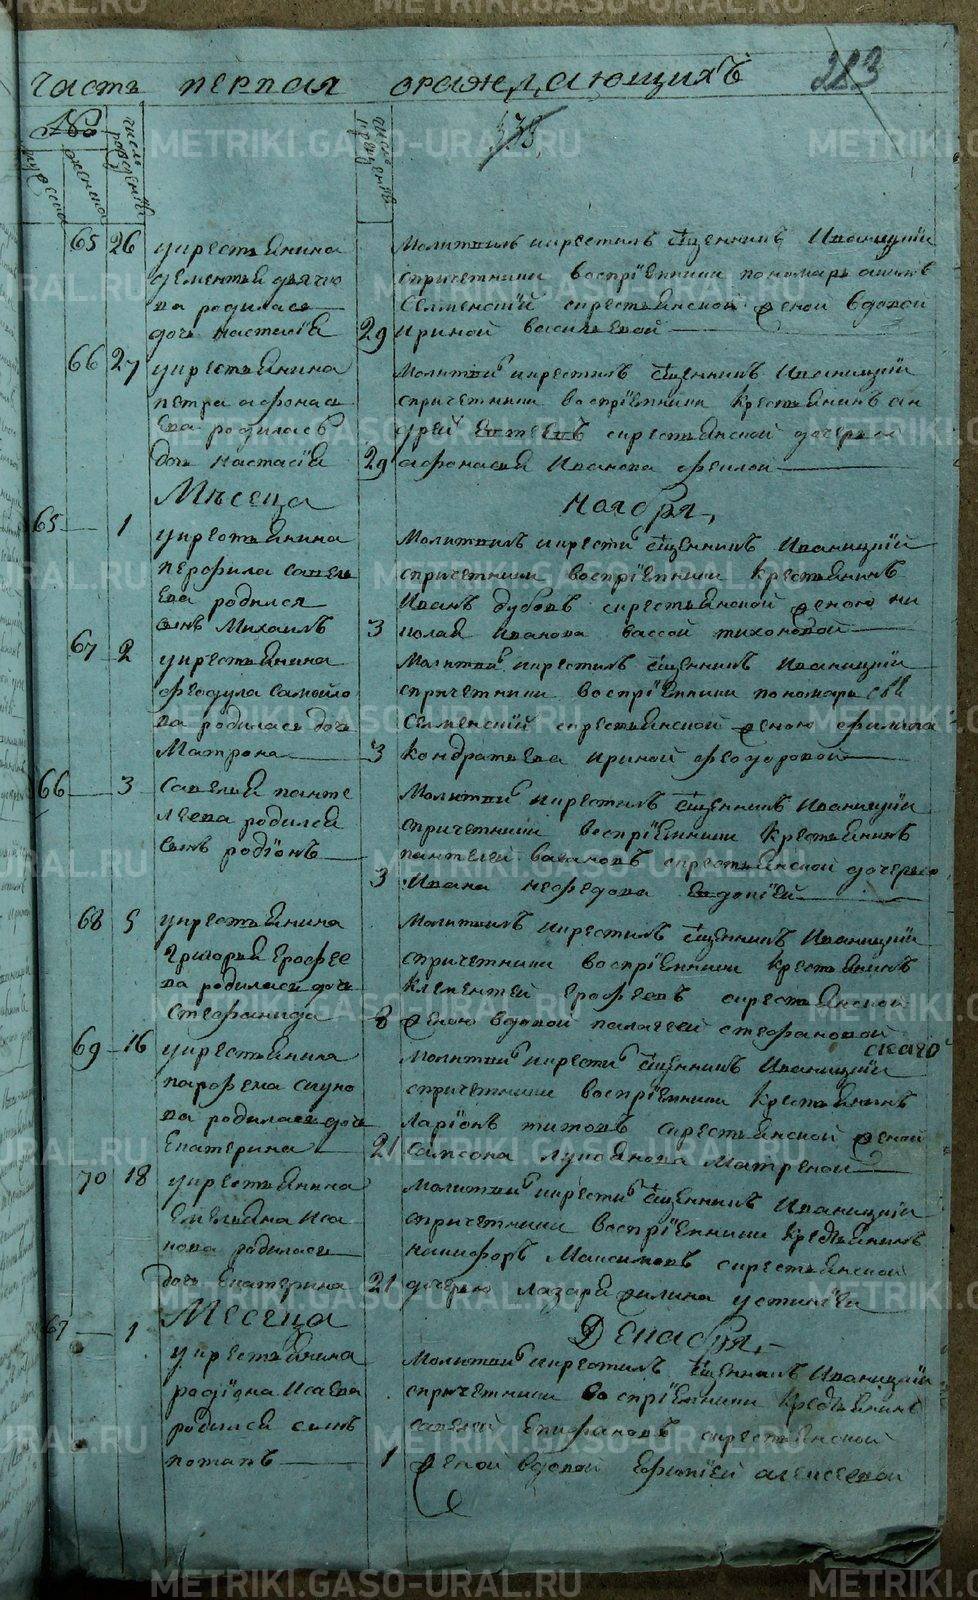 METRIKI.GASO-URAL.RU
часть первая ораждающихъ
283
№
число рожденій
число крещенія
мужеска
женска
538
65 26 укрестьянина
дементья дьячко
ва родилась
дочь настасія 29
Молитвилъ икрестилъ священникъ Иваницкій
спричетники воспріемники пономарь
Семенскій скрестьянской женой вдовой
ириной васильевой
66 27 укрестьянина
петра афонась
ева родилась
дочь настасія 29
Молитвилъ икрестилъ священникъ Иваницкій
спричетники воспріемники крестьянинъ ан
дрей скрестьянской дочерью
афонасья Иванова феклой
Мѣсеца ноября,
65 1 укрестьянина
перфила савель
ева родился
сынъ Михаилъ 3
Молитвилъ икрестилъ священникъ Иваницкій
спричетники воспріемники крестьянинъ
Иванъ дубовъ скрестьянской женою ни
колая иванова вассой тихоновой
67 2 укрестьянина
федула самойло
ва родилась дочь
Матрона 3
Молитвилъ икрестилъ священникъ Иваницкій
спричетники воспріемники пономарь
Семенскій скрестьянской женою филипа
кондратьева ириной феодоровой
66 3 Савелья панте
леева родился
сынъ родіонъ 3
Молитвилъ икрестилъ священникъ Иваницкій
спричетники воспріемники крестьянинъ
пантелей скрестьянской дочерью
Ивана нефедова Евдокіей
68 5 укрестьянина
григорья ерофее
ва родилась дочь
Стефанида 8
Молитвилъ икрестилъ священникъ Иваницкій
спричетники воспріемники крестьянинъ
клементей ерофеевъ скрестьянской
женою вдовой палагеей стефановой
69 16 укрестьянина
парфема
ва родилась дочь
Екатерина 21
Молитвилъ икрестилъ священникъ Иваницкій
спричетники воспріемники крестьянинъ
Ларіонъ титовъ скрестьянской женой
Самсона лукоянова Матреной
70 18 укрестьянина
Емельяна Иса
кова родилась
дочь Екатерина 21
Молитвилъ икрестилъ священникъ Иваницкій
спричетники воспріемники крестьянинъ
никифоръ Максимовъ скрестьянской
дочерью лазаря устинiей
Месеца Декабря,
67 1 укрестьянина
родіона Исаева
родился сынъ
потапъ 1
Молитвилъ икрестилъ священникъ Иваницкій
спричетники воспріемники крестьянинъ
савелей епифановъ скрестьянской
женой вдовой Ефимiей алексеевой